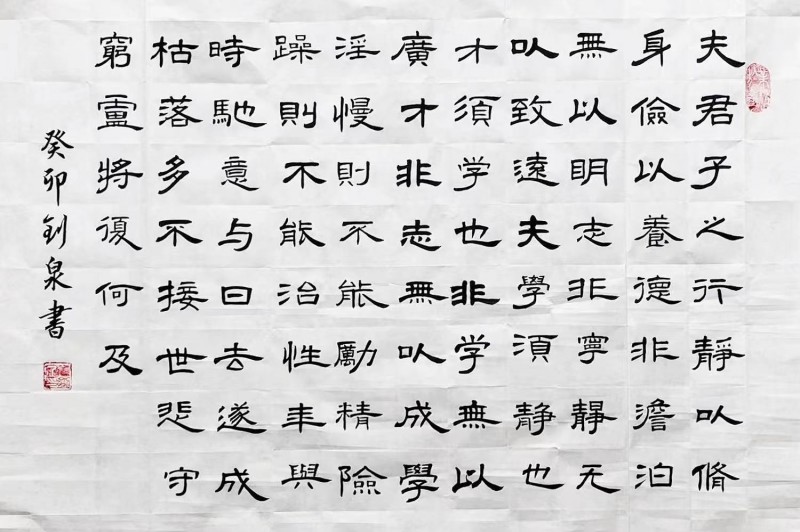 夫君子之行靜以脩
身儉以養德非澹泊
無以明志非寧靜无
以致遠夫學須静也
才須学也非学無以
廣才非志無以成學
淫慢則不能勵精險
躁則不能治性年與
時馳意与日去遂成
枯落多不接世悲守
窮盧將復何及
癸卯钊泉書